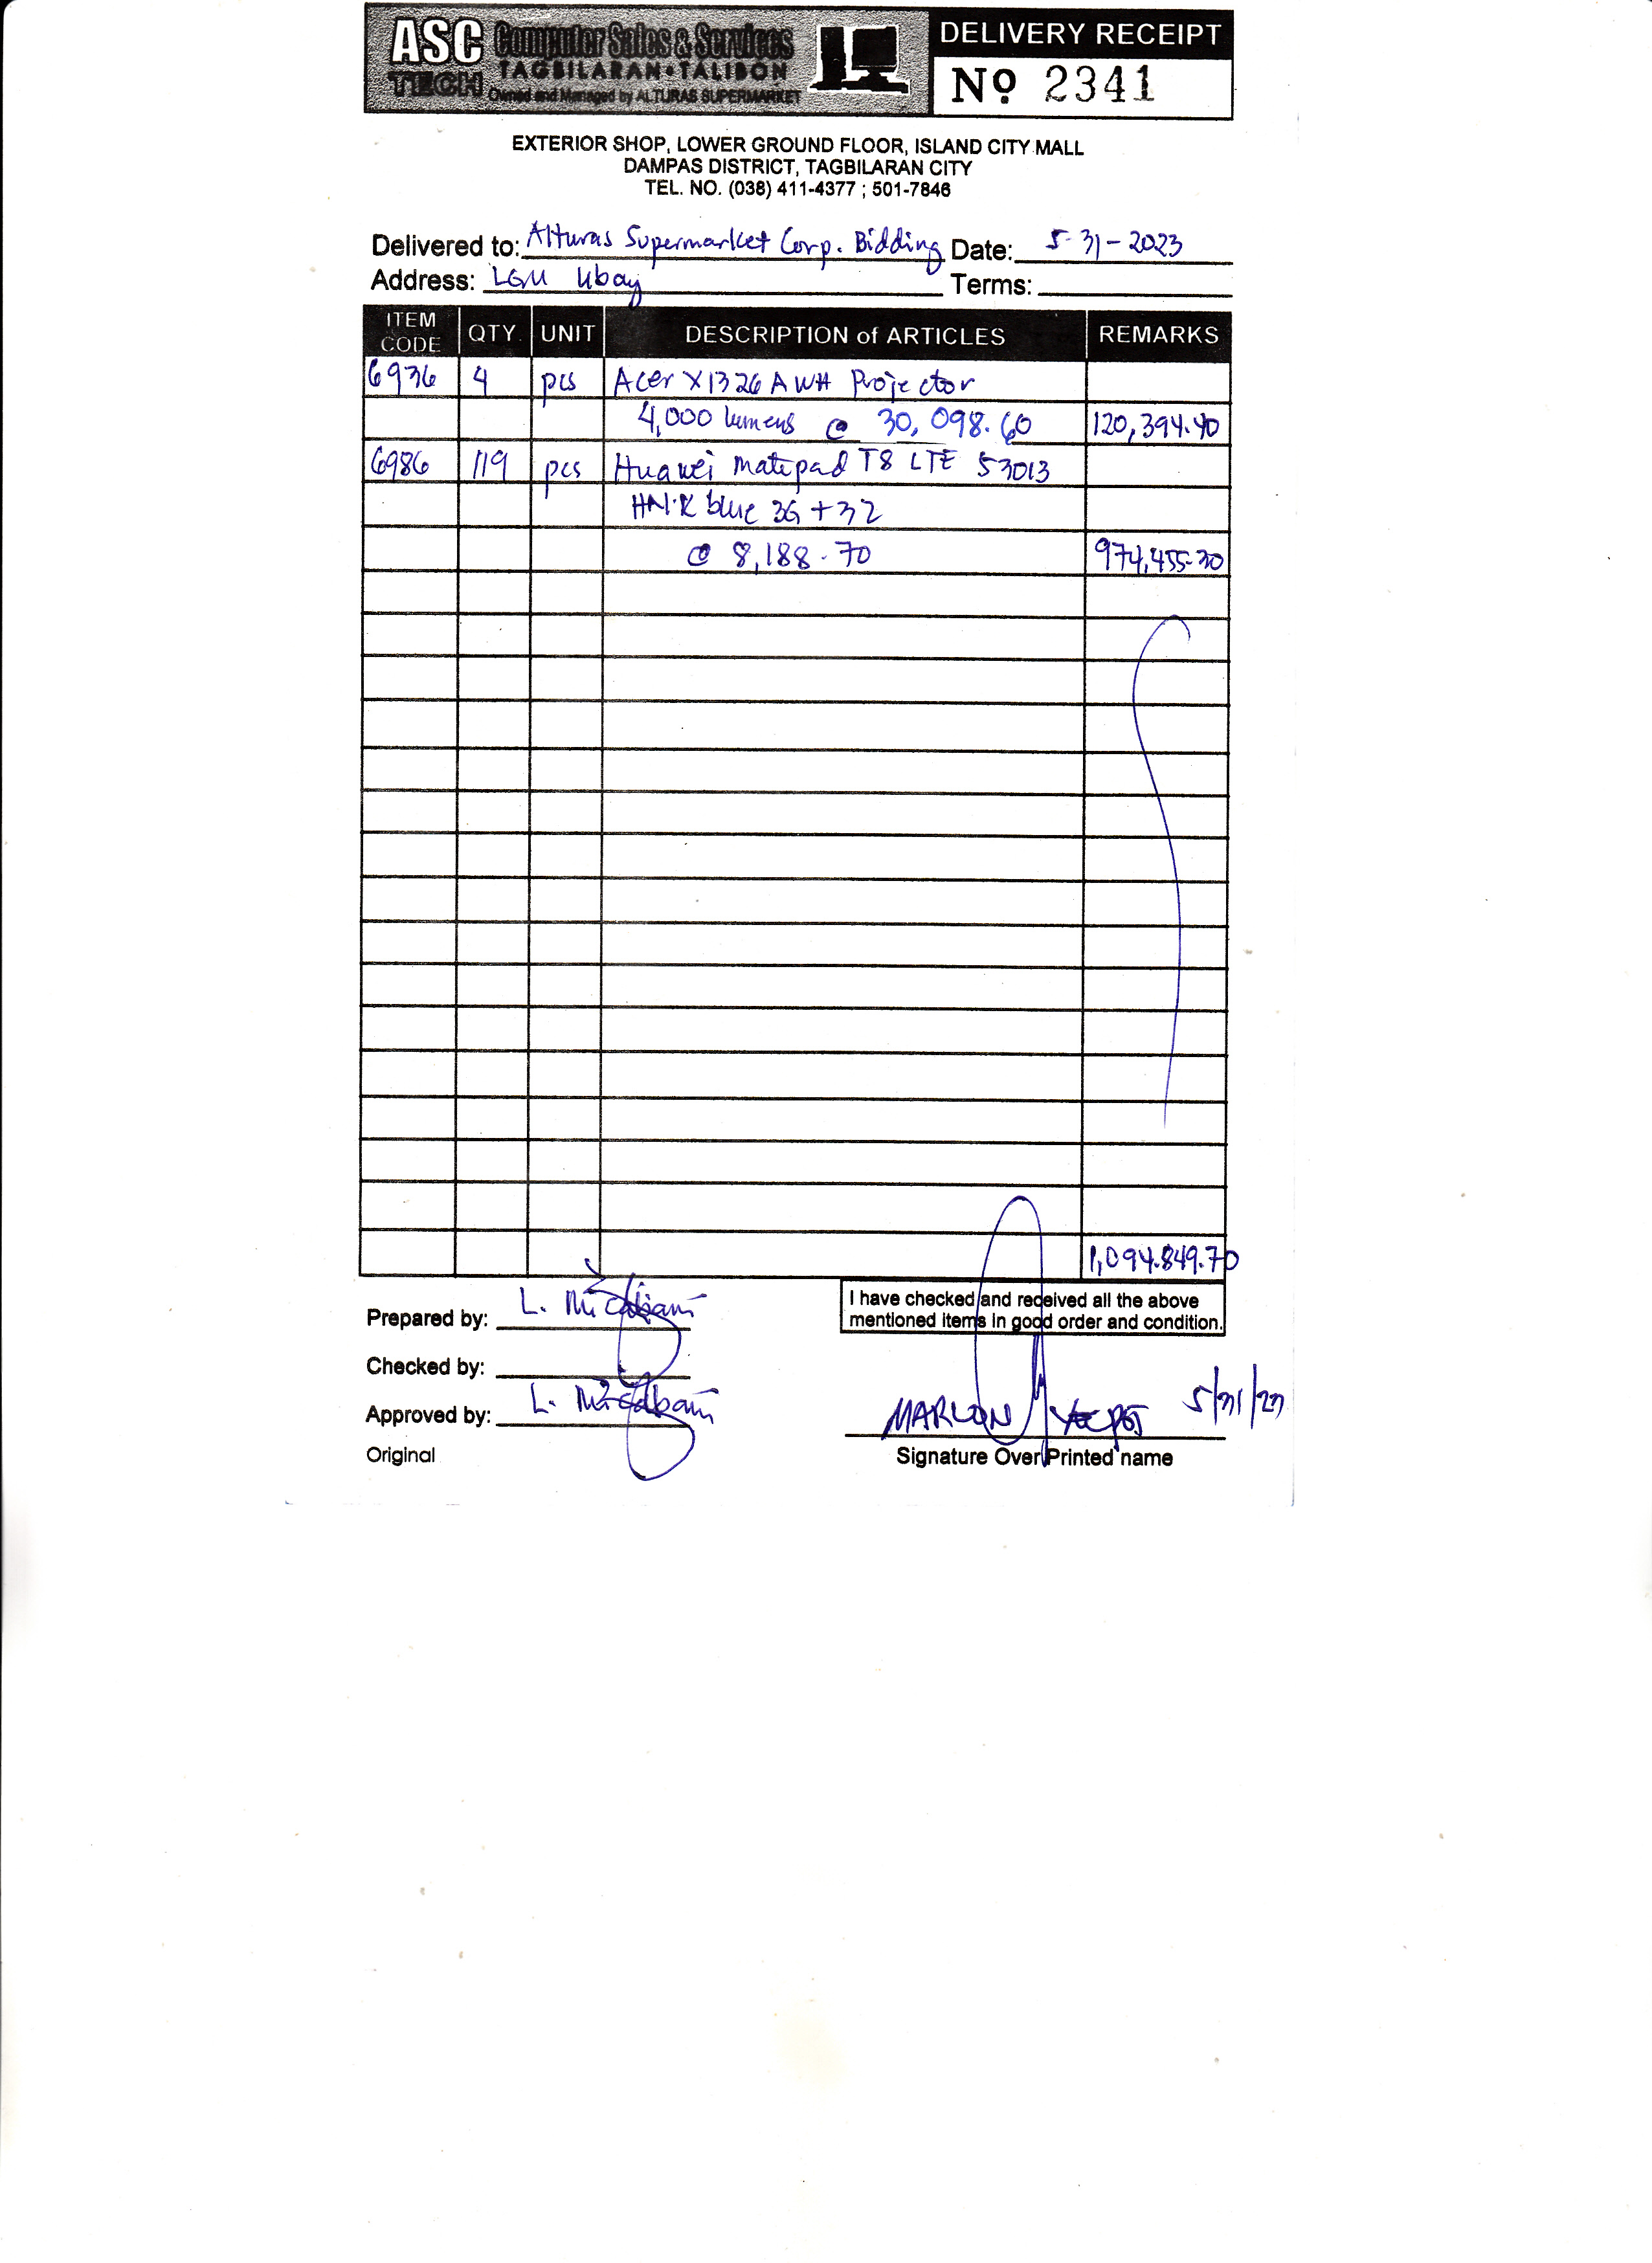 ASC Computer Sales & Services
TAGBILARAN • TALIBON
TECH Owned and Managed by ALTURAS SUPERMARKET
DELIVERY RECEIPT
Nº 2341
EXTERIOR SHOP, LOWER GROUND FLOOR, ISLAND CITY MALL
DAMPAS DISTRICT, TAGBILARAN CITY
TEL. NO. (038) 411-4377 ; 501-7846
Delivered to: Alturas Supermarket Corp. Bidding Date: 5-31-2023
Address: LGU Ubay Terms:
ITEM CODE QTY. UNIT DESCRIPTION of ARTICLES REMARKS
6936 4 pcs Acer X1326AWH Projector
4,000 lumens @ 30,098.60 120,394.40
6986 119 pcs Huawei matepad T8 LTE 53013
blue 3G+32
@ 8,188.70 974,455.30
1,094.849.70
Prepared by: L.
I have checked and received all the above
mentioned items in good order and condition.
Checked by:
Approved by: L.
MARLON 5/31/23
Original
Signature Over Printed name